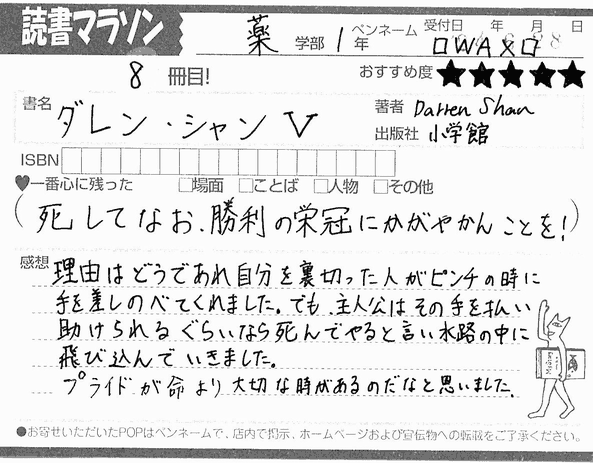 読書マラソン
薬 学部 1年 ペンネーム 受付日 年 月 日
ロWAメロ
8 冊目! おすすめ度 ★★★★★
書名 ダレン・シャン V
著者 Darren Shan
出版社 小学館
ISBN
♥一番心に残った □場面 □ことば □人物 □その他
(死してなお、勝利の栄冠にかがやかんことを!)
感想 理由はどうであれ自分を裏切った人がピンチの時に
手を差しのべてくれました。でも、主人公はその手を払い
助けられるぐらいなら死んでやると言い水路の中に
飛び込んでいきました。
プライドが命より大切な時があるのだなと思いました。
●お寄せいただいたPOPはペンネームで、店内で掲示、ホームページおよび宣伝物への転載をご了承ください。